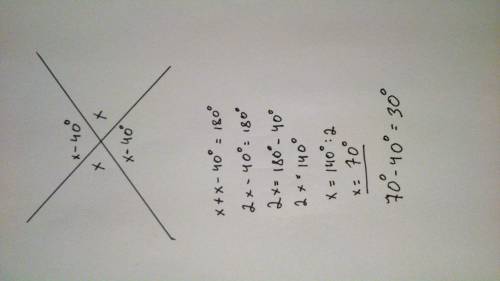 x
x-40°
x-40°
x
x+x-40°=180°
2x-40°=180°
2x=180°-40°
2x°140°
x=140°:2
x=70°
70°-40°=30°